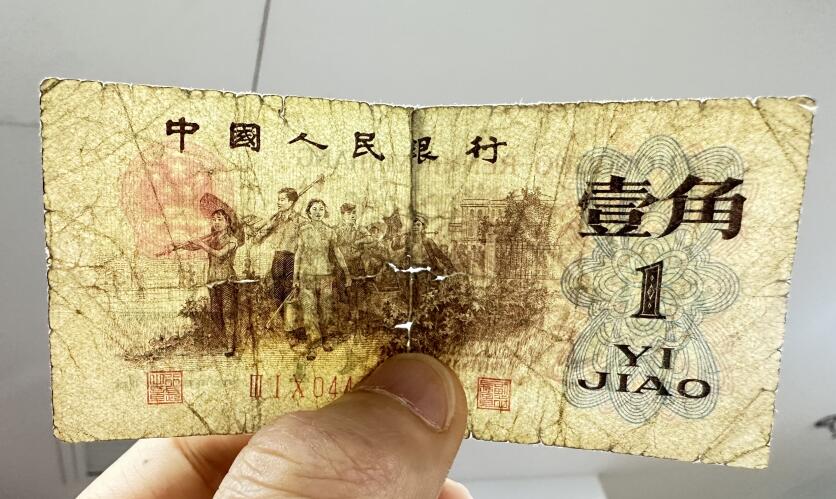 中國人民銀行
壹角
1
YI
JIAO
III I X 044